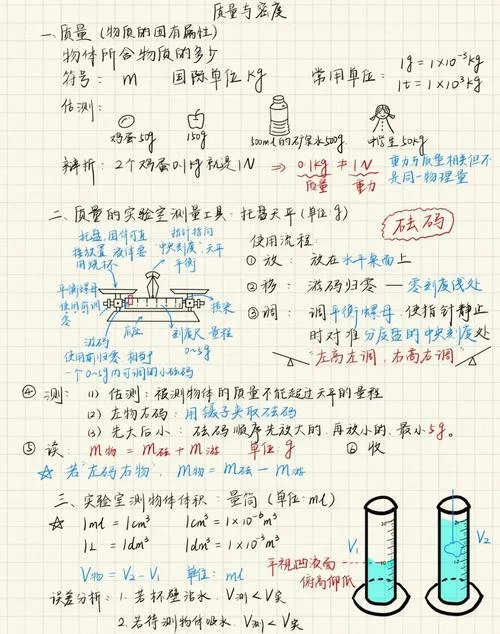 质量与密度
一、质量 (物质的固有属性)
物体所含物质的多少
符号: m 国际单位 kg 常用单位: 1g = 1×10⁻³kg
1t = 1×10³kg
估测:
鸡蛋50g 150g 500ml的矿泉水500g 中学生50kg
辨析: 2个鸡蛋0.1kg就是1N ⇒ 0.1kg ≠ 1N
质量 重力
重力与质量相关但不是同一物理量
二、质量的实验室测量工具: 托盘天平 (单位 g)
砝码
托盘, 固体可直接放置 液体需用烧杯
指针指向"中央刻度"天平平衡
平衡螺母使用前调零
横梁
底座
游码
使用前归零 相当于一个0~5g内可调的小砝码
刻度尺 量程 0~5g
使用流程:
① 放: 放在水平桌面上
② 移: 游码归零 — 零刻度线处
③ 调: 调平衡螺母, 使指针静止
时对准分度盘的中央刻度处
"左高左调, 右高右调"
④ 测: (1) 估测: 被测物体的质量不能超过天平的量程
(2) 左物右码: 用镊子夹取砝码
(3) 先大后小: 砝码顺序先放大的, 再放小的, 最小5g。
⑤ 读: m物 = m砝 + m游 单位: g ⑥ 收
☆ 若"左码右物", m物 = m砝 - m游
三、实验室测物体体积: 量筒 (单位: ml)
☆ 1ml = 1cm³ 1cm³ = 1×10⁻⁶m³
1L = 1dm³ 1dm³ = 1×10⁻³m³
V物 = V₂ - V₁ 单位: ml
平视凹液面
俯高仰低
V₁
V₂
误差分析: 1. 若杯壁沾水, V测 < V实
2. 若待测物体吸水, V测 < V实